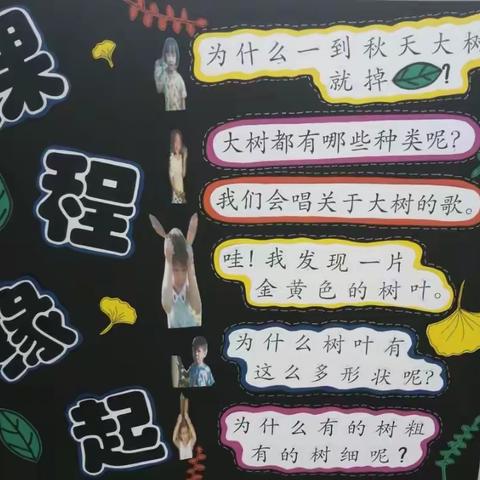 课
程
缘
起
为什么一到秋天大树
就掉?
大树都有哪些种类呢?
我们会唱关于大树的歌。
哇!我发现一片
金黄色的树叶。
为什么树叶有
这么多形状呢?
为什么有的树粗
有的树细呢?